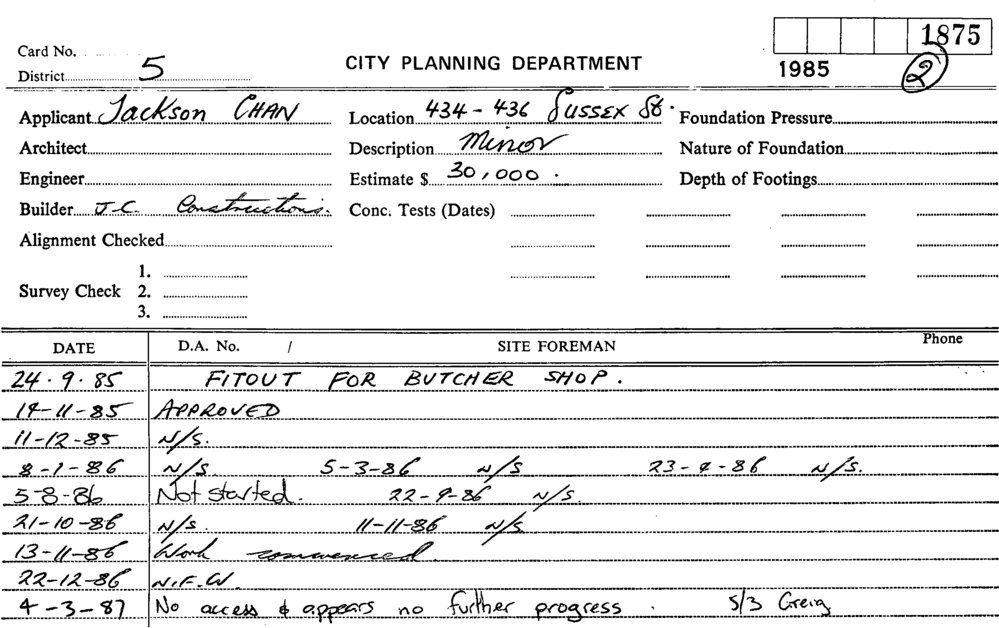 1875
Card No.
District 5
CITY PLANNING DEPARTMENT
1985
2
Applicant Jackson CHAN
Location 434 - 436 SUSSEX St.
Foundation Pressure
Architect
Description Minor
Nature of Foundation
Engineer
Estimate $ 30,000.
Depth of Footings
Builder J.C. Constructions.
Conc. Tests (Dates)
Alignment Checked
Survey Check
1.
2.
3.
DATE D.A. No. / SITE FOREMAN Phone
24.9.85 FITOUT FOR BUTCHER SHOP.
14-11-85 APPROVED
11-12-85 N/S.
8-1-86 N/S. 5-3-86 N/S 23-4-86 N/S.
5-8-86 Not started. 22-9-86 N/S.
21-10-86 N/S. 11-11-86 N/S
13-11-86 Work commenced.
22-12-86 N.F.W.
4-3-87 No access & appears no further progress. 5/3 Greig